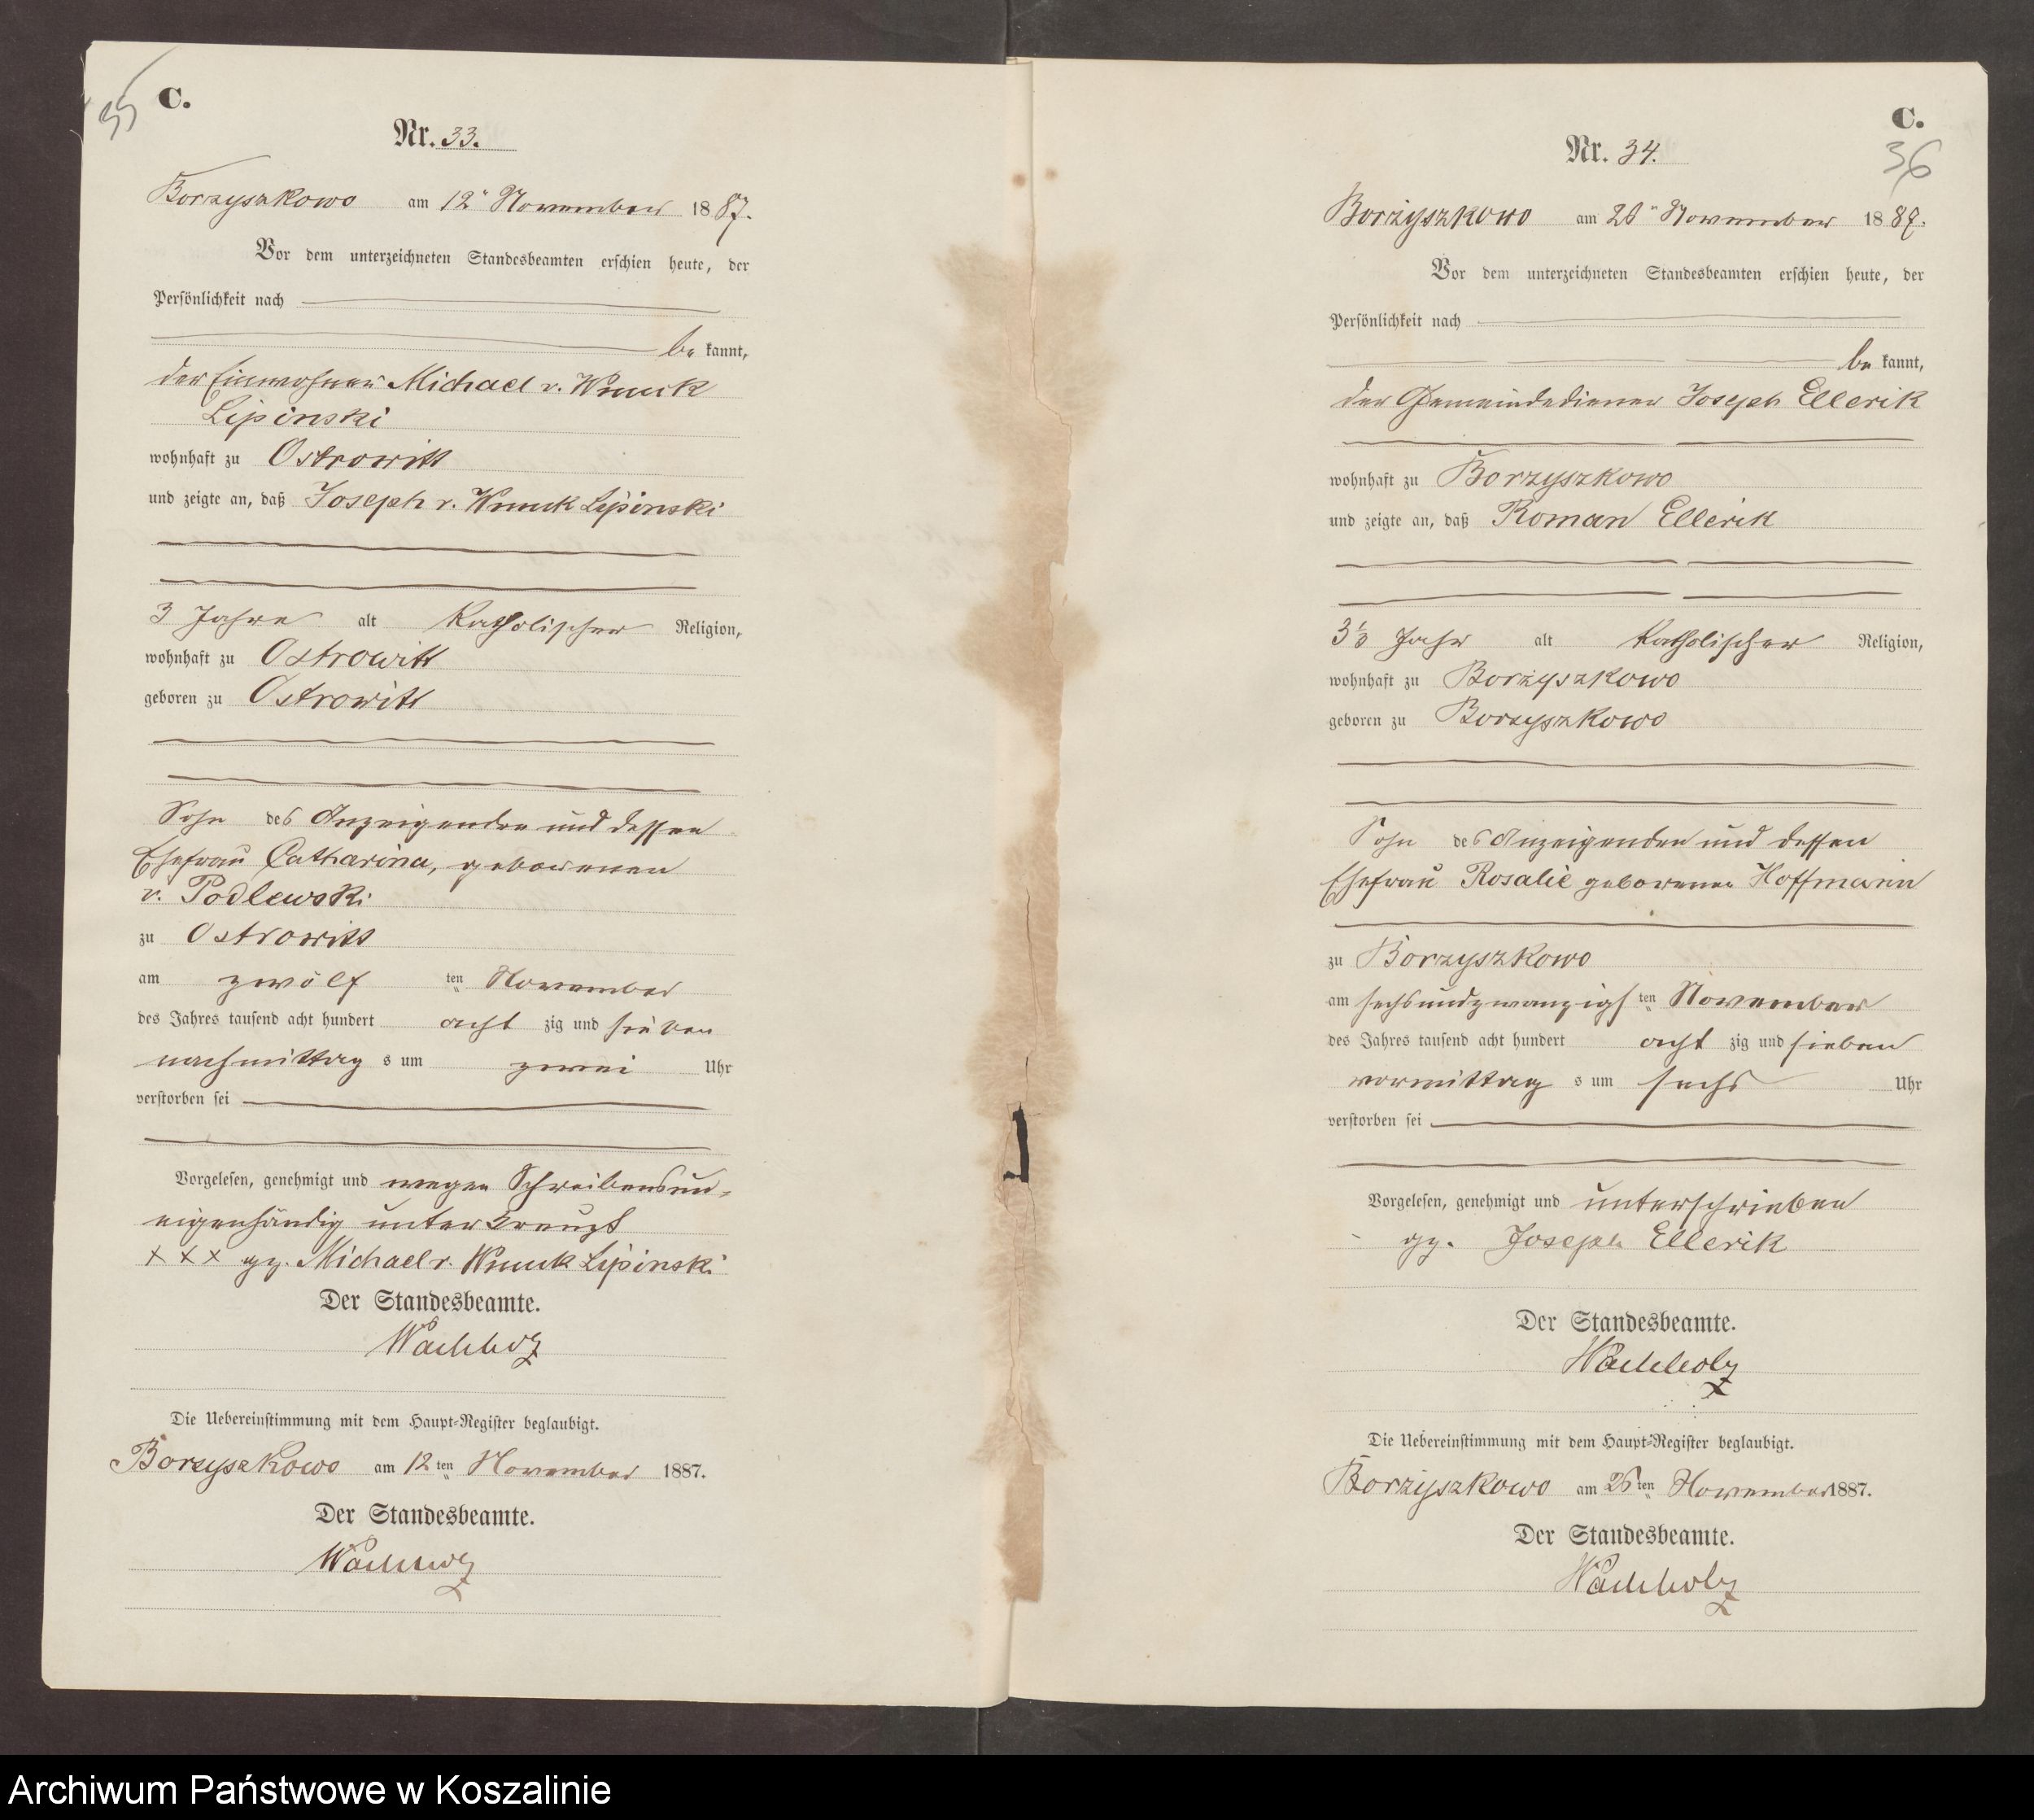 35
C.
Nr. 33.
Borzyszkowo am 12ⁿ November 1887.
Vor dem unterzeichneten Standesbeamten erschien heute, der
Persönlichkeit nach
be kannt,
der Einwohner Michael v. Wnuck
Lipinski
wohnhaft zu Ostrowitt
und zeigte an, daß Joseph v. Wnuck Lipinski
3 Jahre alt katholischer Religion,
wohnhaft zu Ostrowitt
geboren zu Ostrowitt
Sohn des Anzeigenden und dessen
Ehefrau Catharina, geborenen
v. Podlewski
zu Ostrowitt
am zwölf ten November
des Jahres tausend acht hundert acht zig und sieben
nachmittag s um zwei Uhr
verstorben sei
Vorgelesen, genehmigt und wegen Schreibensun-
eigenhändig unterkreuzt
+ + + gz. Michael v. Wnuck Lipinski
Der Standesbeamte.
Wachholz
Die Uebereinstimmung mit dem Haupt-Register beglaubigt.
Borzyszkowo am 12 ten November 1887.
Der Standesbeamte.
Wachholz
C.
36
Nr. 34.
Borzyszkowo am 26ⁿ November 1887.
Vor dem unterzeichneten Standesbeamten erschien heute, der
Persönlichkeit nach
be kannt,
der Gemeindediener Joseph Ellerik
wohnhaft zu Borzyszkowo
und zeigte an, daß Roman Ellerik
Jahr alt katholischer Religion,
wohnhaft zu Borzyszkowo
geboren zu Borzyszkowo
Sohn des Anzeigenden und dessen
Ehefrau Rosalie geborenen Hoffmann
zu Borzyszkowo
am sechsundzwanzigs ten November
des Jahres tausend acht hundert acht zig und sieben
vormittag s um sechs Uhr
verstorben sei
Vorgelesen, genehmigt und unterschrieben
gz. Joseph Ellerik
Der Standesbeamte.
Wachholz
Die Uebereinstimmung mit dem Haupt-Register beglaubigt.
Borzyszkowo am 26 ten November 1887.
Der Standesbeamte.
Wachholz
Archiwum Państwowe w Koszalinie